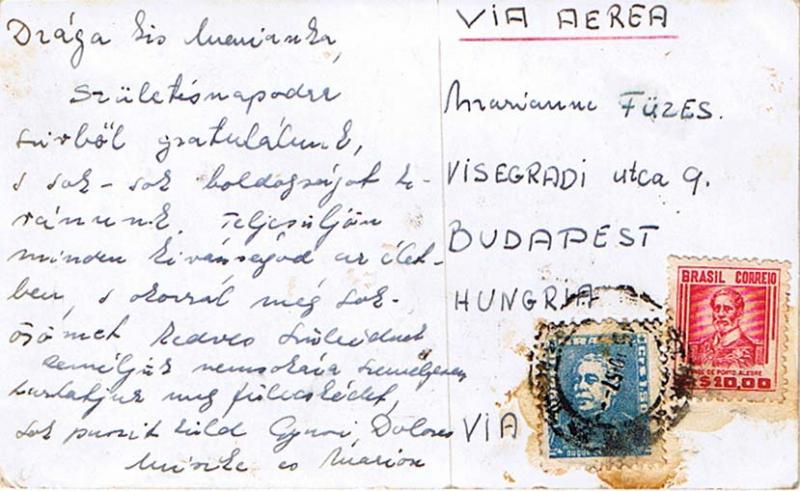 Drága kis Marianka,
Születésnapodra
szivből gratulálunk,
s sok-sok boldogságot ki-
vánunk. Teljesüljön
minden kivánságod az élet-
ben, s okozzál még sok
örömet kedves szüleidnek
Reméljük nemsokára személyesen
huzhatjuk meg fülecskédet,
sok puszit küld Gyuri, Dolores
Miszke es Marion
VIA AEREA
Marianne FÜZES.
VISEGRADI utca 9.
BUDAPEST
HUNGRIA
VIA
BRASIL CORREIO
DE PORTO ALEGRE
$10,00